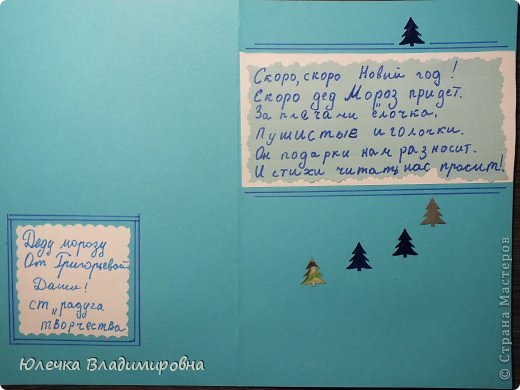 Скоро, скоро Новый год!
Скоро дед Мороз придет.
За плечами ёлочка,
Пушистые иголочки.
Он подарки нам разносит.
И стихи читать нас просит!
Деду морозу
От Григорцевой
Даши!
ст „радуга
творчества
Юлечка Владимировна
© Страна Мастеров